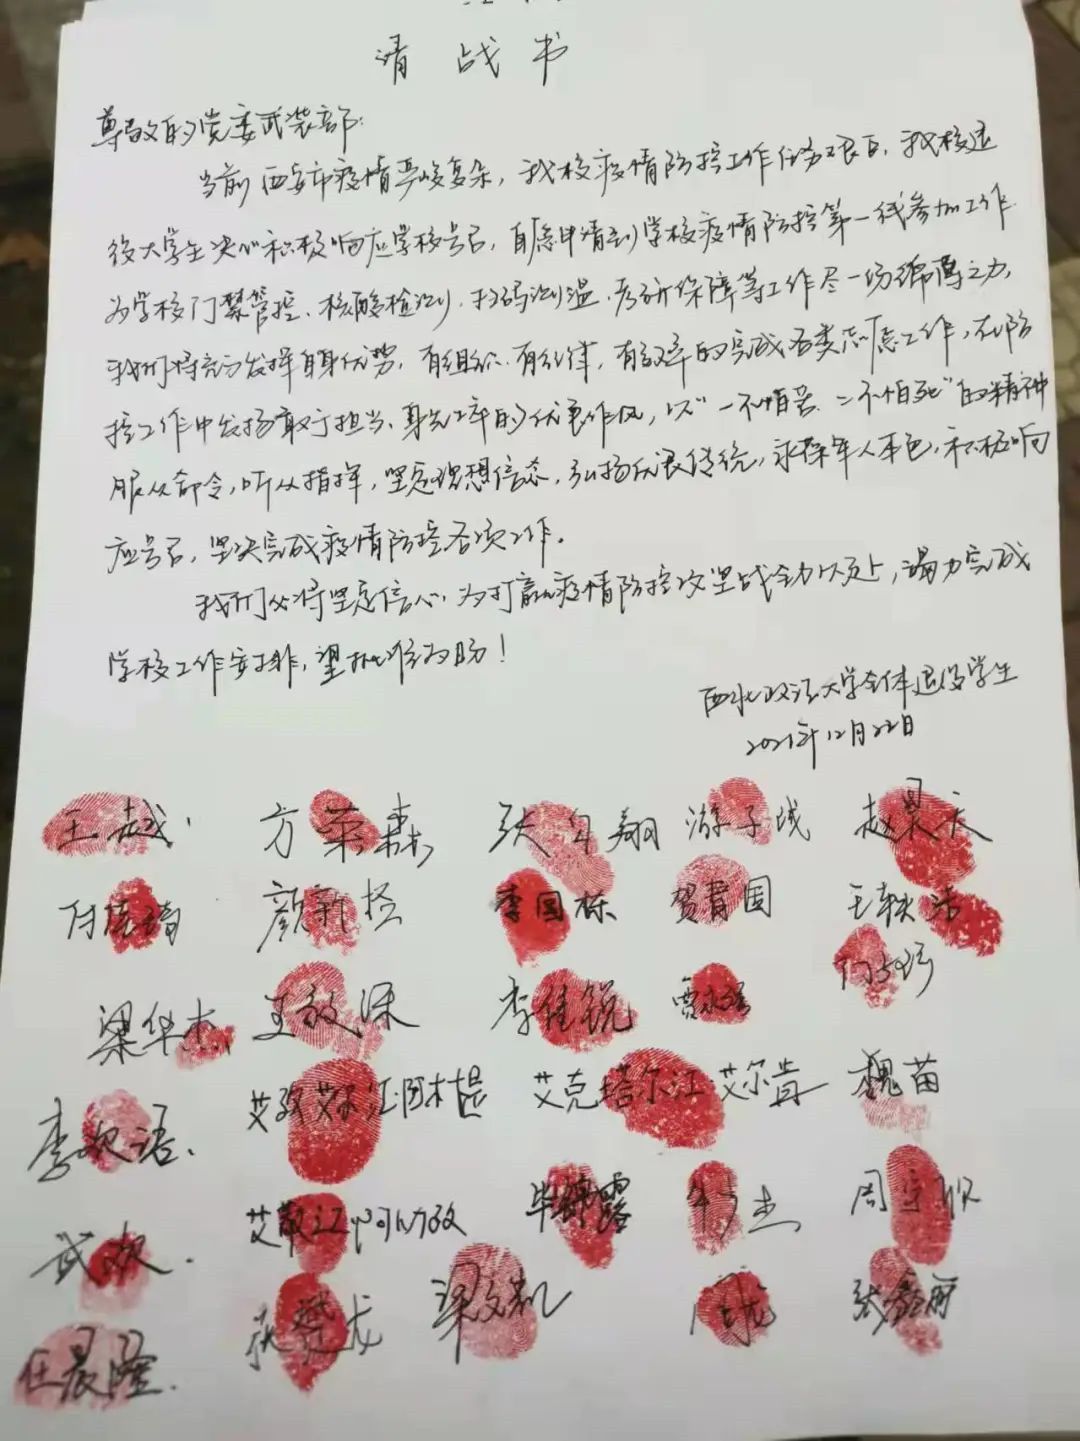 请战书
尊敬的党委武装部:
当前西安市疫情严峻复杂，我校疫情防控工作任务艰巨，我校退
役大学生决心积极响应学校号召，自愿申请到学校疫情防控第一线参加工作
为学校门禁管控、核酸检测、扫码测温、考研保障等工作尽一份绵薄之力，
我们将充分发挥自身优势，有组织、有纪律，有效率的完成各类志愿工作，在防
控工作中发扬敢于担当、身先士卒的优良作风，以"一不怕苦、二不怕死"的精神
服从命令，听从指挥，坚定理想信念，弘扬优良传统，永葆军人本色，积极响
应号召，坚决完成疫情防控各项工作。
我们必将坚定信心，为打赢疫情防控攻坚战全力以赴，竭力完成
学校工作安排，望批准为盼！
西北政法大学全体退役学生
2021年12月22日
王越 方荣森 张 翔 游子 赵昊天
颜新 李国栋 贺育国 王轶浩
梁华杰 王敏深 李佳锐
李欢语 艾孜 江·图 艾克塔尔江·艾尔肯 魏苗
武欢 艾散江·阿 露 杰 周宇欣
任晨隆 龙 梁文凯 周龙 张鑫丽